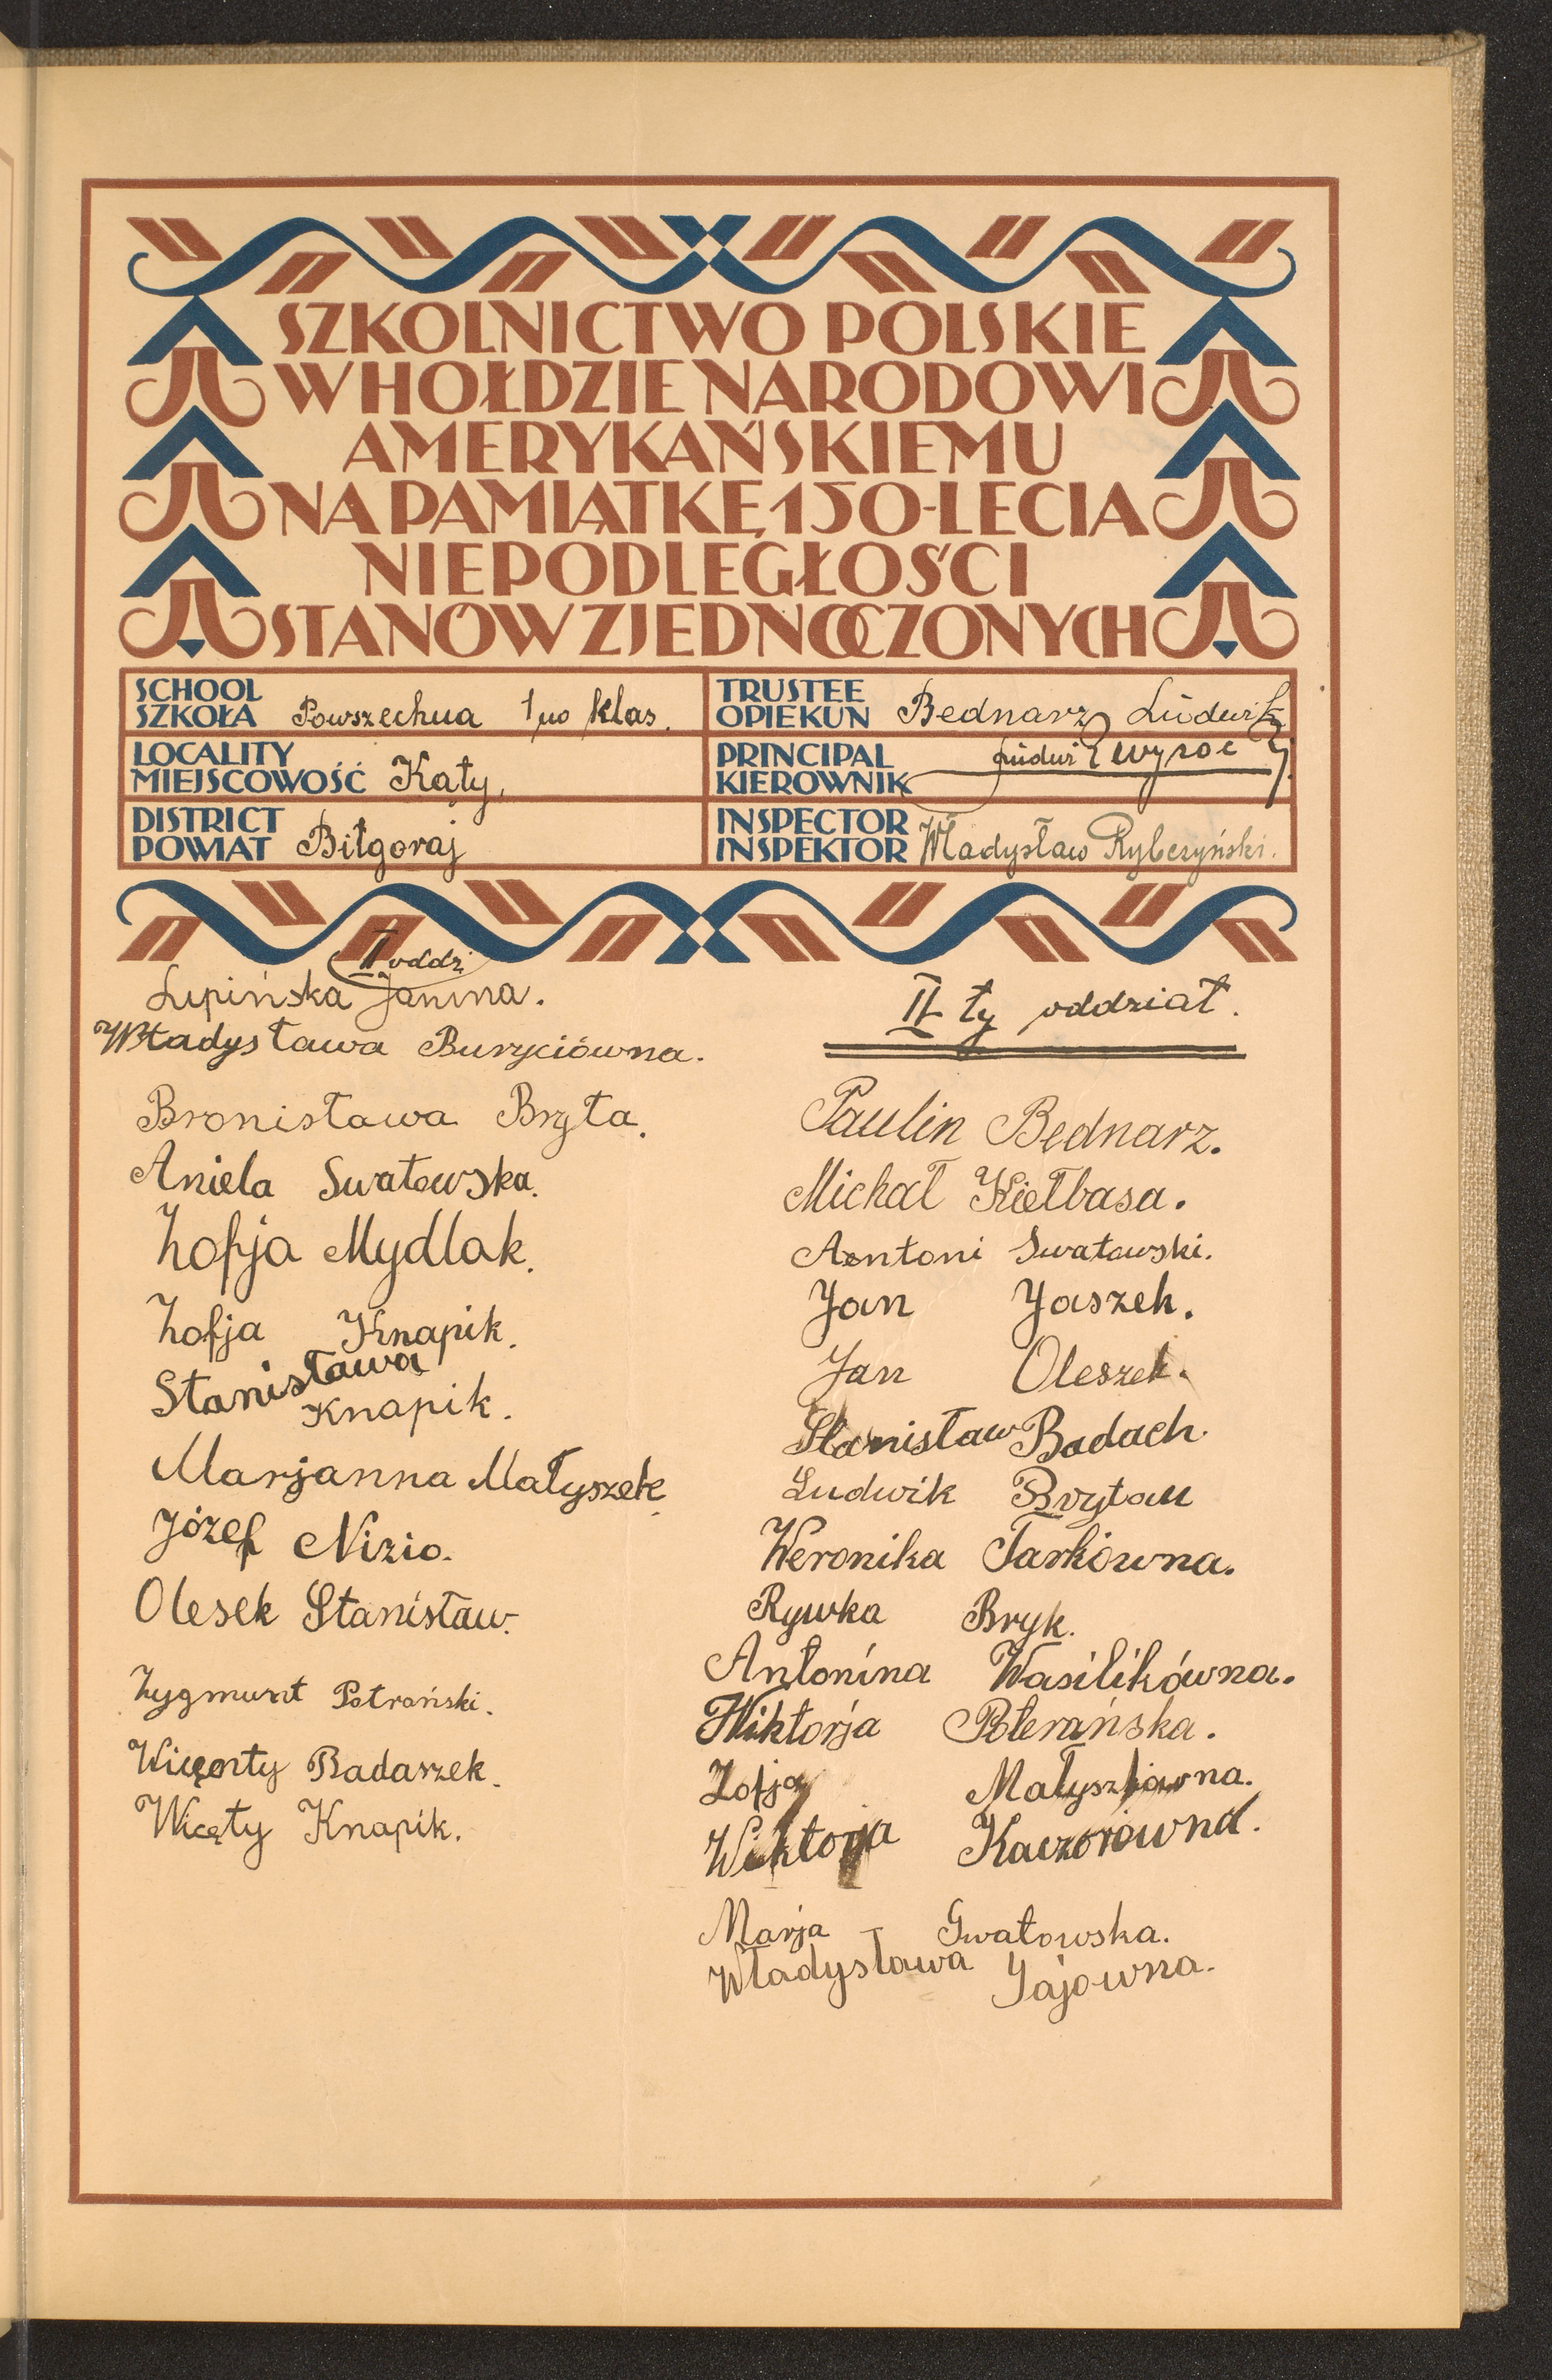 SZKOLNICTWO POLSKIE
W HOŁDZIE NARODOWI
AMERYKAŃSKIEMU
NA PAMIĄTKĘ 150-LECIA
NIEPODLEGŁOŚCI
STANÓW ZJEDNOCZONYCH
SCHOOL
SZKOŁA Powszechna 1 no klas.
TRUSTEE
OPIEKUN Bednarz Ludwik
LOCALITY
MIEJSCOWOŚĆ Kąty,
PRINCIPAL
KIEROWNIK
DISTRICT
POWIAT Biłgoraj
INSPECTOR
INSPEKTOR Władysław Rybczyński.
II oddz
Lupińska Janina.
Władysława Buryciówna.
Bronisława Bryła.
Aniela Swatowska.
Zofja Mydlak.
Zofja Knapik.
Stanisława
Knapik.
Marjanna Małyszek.
Józef Nizio.
Olesek Stanisław.
Zygmunt Potrański.
Wicęnty Badaszek.
Wicęty Knapik.
II ty oddział.
Paulin Bednarz.
Michał Kiełbasa.
Antoni Swatowski.
Jan Jaszek.
Jan Oleszek.
Stanisław Badach.
Ludwik Brytan
Weronika Tarkówna.
Rywka Bryk.
Antonina Wasilikówna.
Wiktorja Poterańska.
Zofja Małyszkówna.
Wiktorja Kaczorówna.
Marja Gwatowska.
Władysława Gajowna.